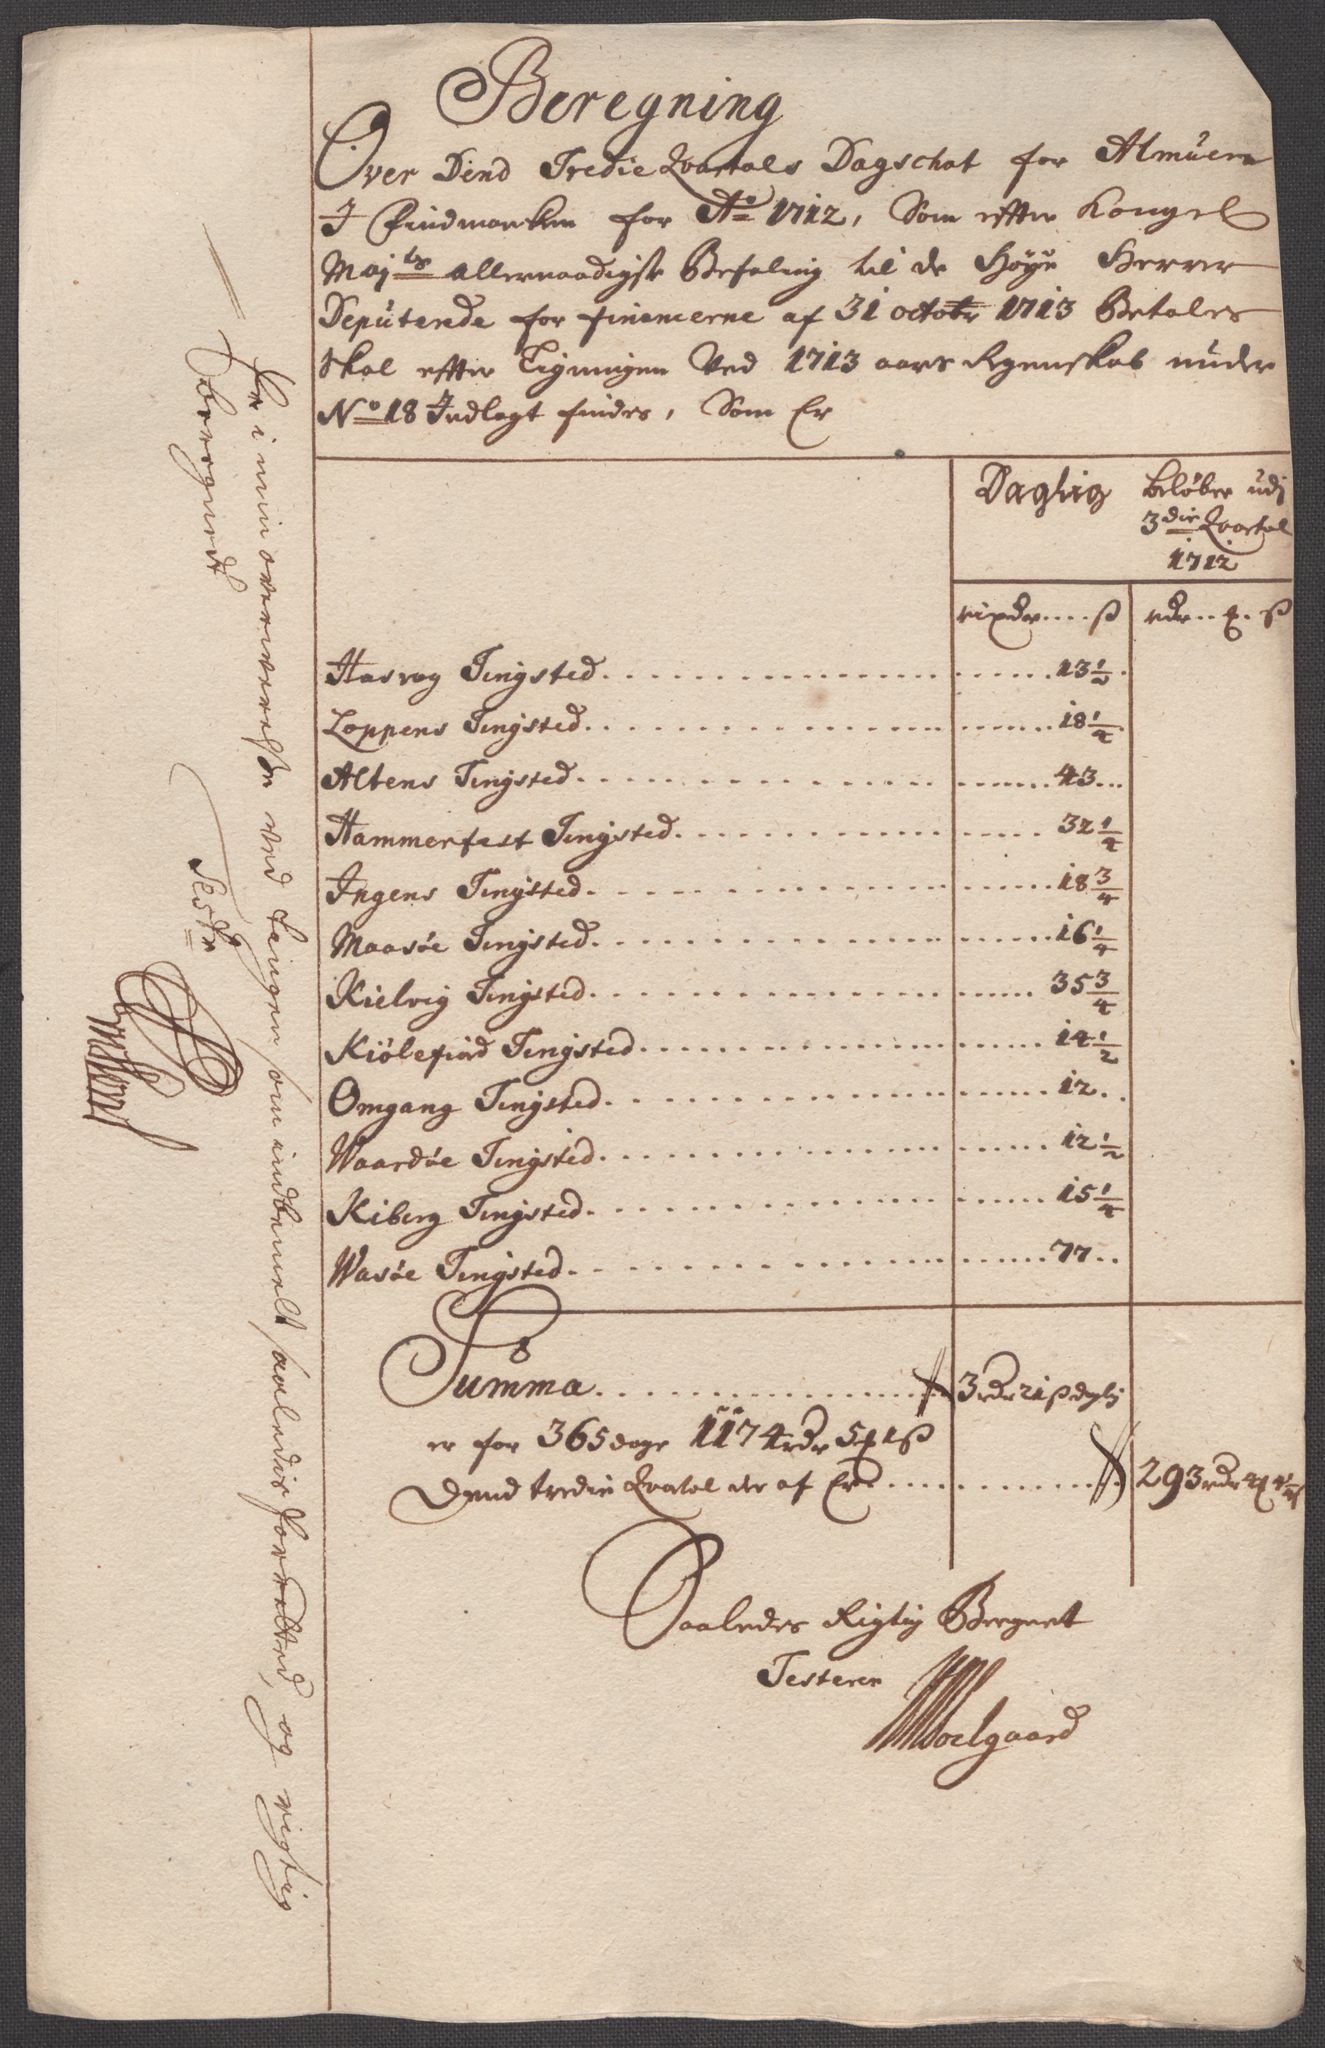 Beregning
Over Dend Tredie Qvartals Dagschat for Almuen
I Findmarken for Ao 1712, Som effter Kongel
Majts allernaadigste Befaling til de Høye Herrer
Deputerede for financerne af 31 octobr 1713 Betales
skal effter Ligningen Ved 1713 aars Regenskab under
No 18 Indlagt findes, Som Er
Daglig beløber udj
3die Qvartal
1712
rixdr.... ß rdr.. ƒ. ß
Hasvog Tingsted. . . . 13 1/2
Loppens Tingsted. . . . 18 1/4
Altens Tingsted. . . . 43...
Hammerfest Tingsted. . . . 32 1/4
Ingens Tingsted. . . . 18 3/4
Maasøe Tingsted. . . . 16 1/4
Kielvig Tingsted. . . . 35 3/4
Kiølefiord Tingsted. . . . 14 1/2
Omgang Tingsted. . . . 12..
Waardøe Tingsted. . . . 12 1/2
Kiberg Tingsted. . . . 15 1/4
Wasøe Tingsted. . . . 77..
Summa. . . . 3 rdr 21 ß dglj
er for 365 dage 1174 rdr 5 ƒ 1 ß
Dend tredie Qvartal der af Er . . . . 293 rdr 4ƒ 4 1/4ß
Saaledes Rigtig Beregnet
Testerer
Soelgaard
I min overværelse ved tinget som indbemelt saaledis forretted, og rigtig
beregnedt
Testr